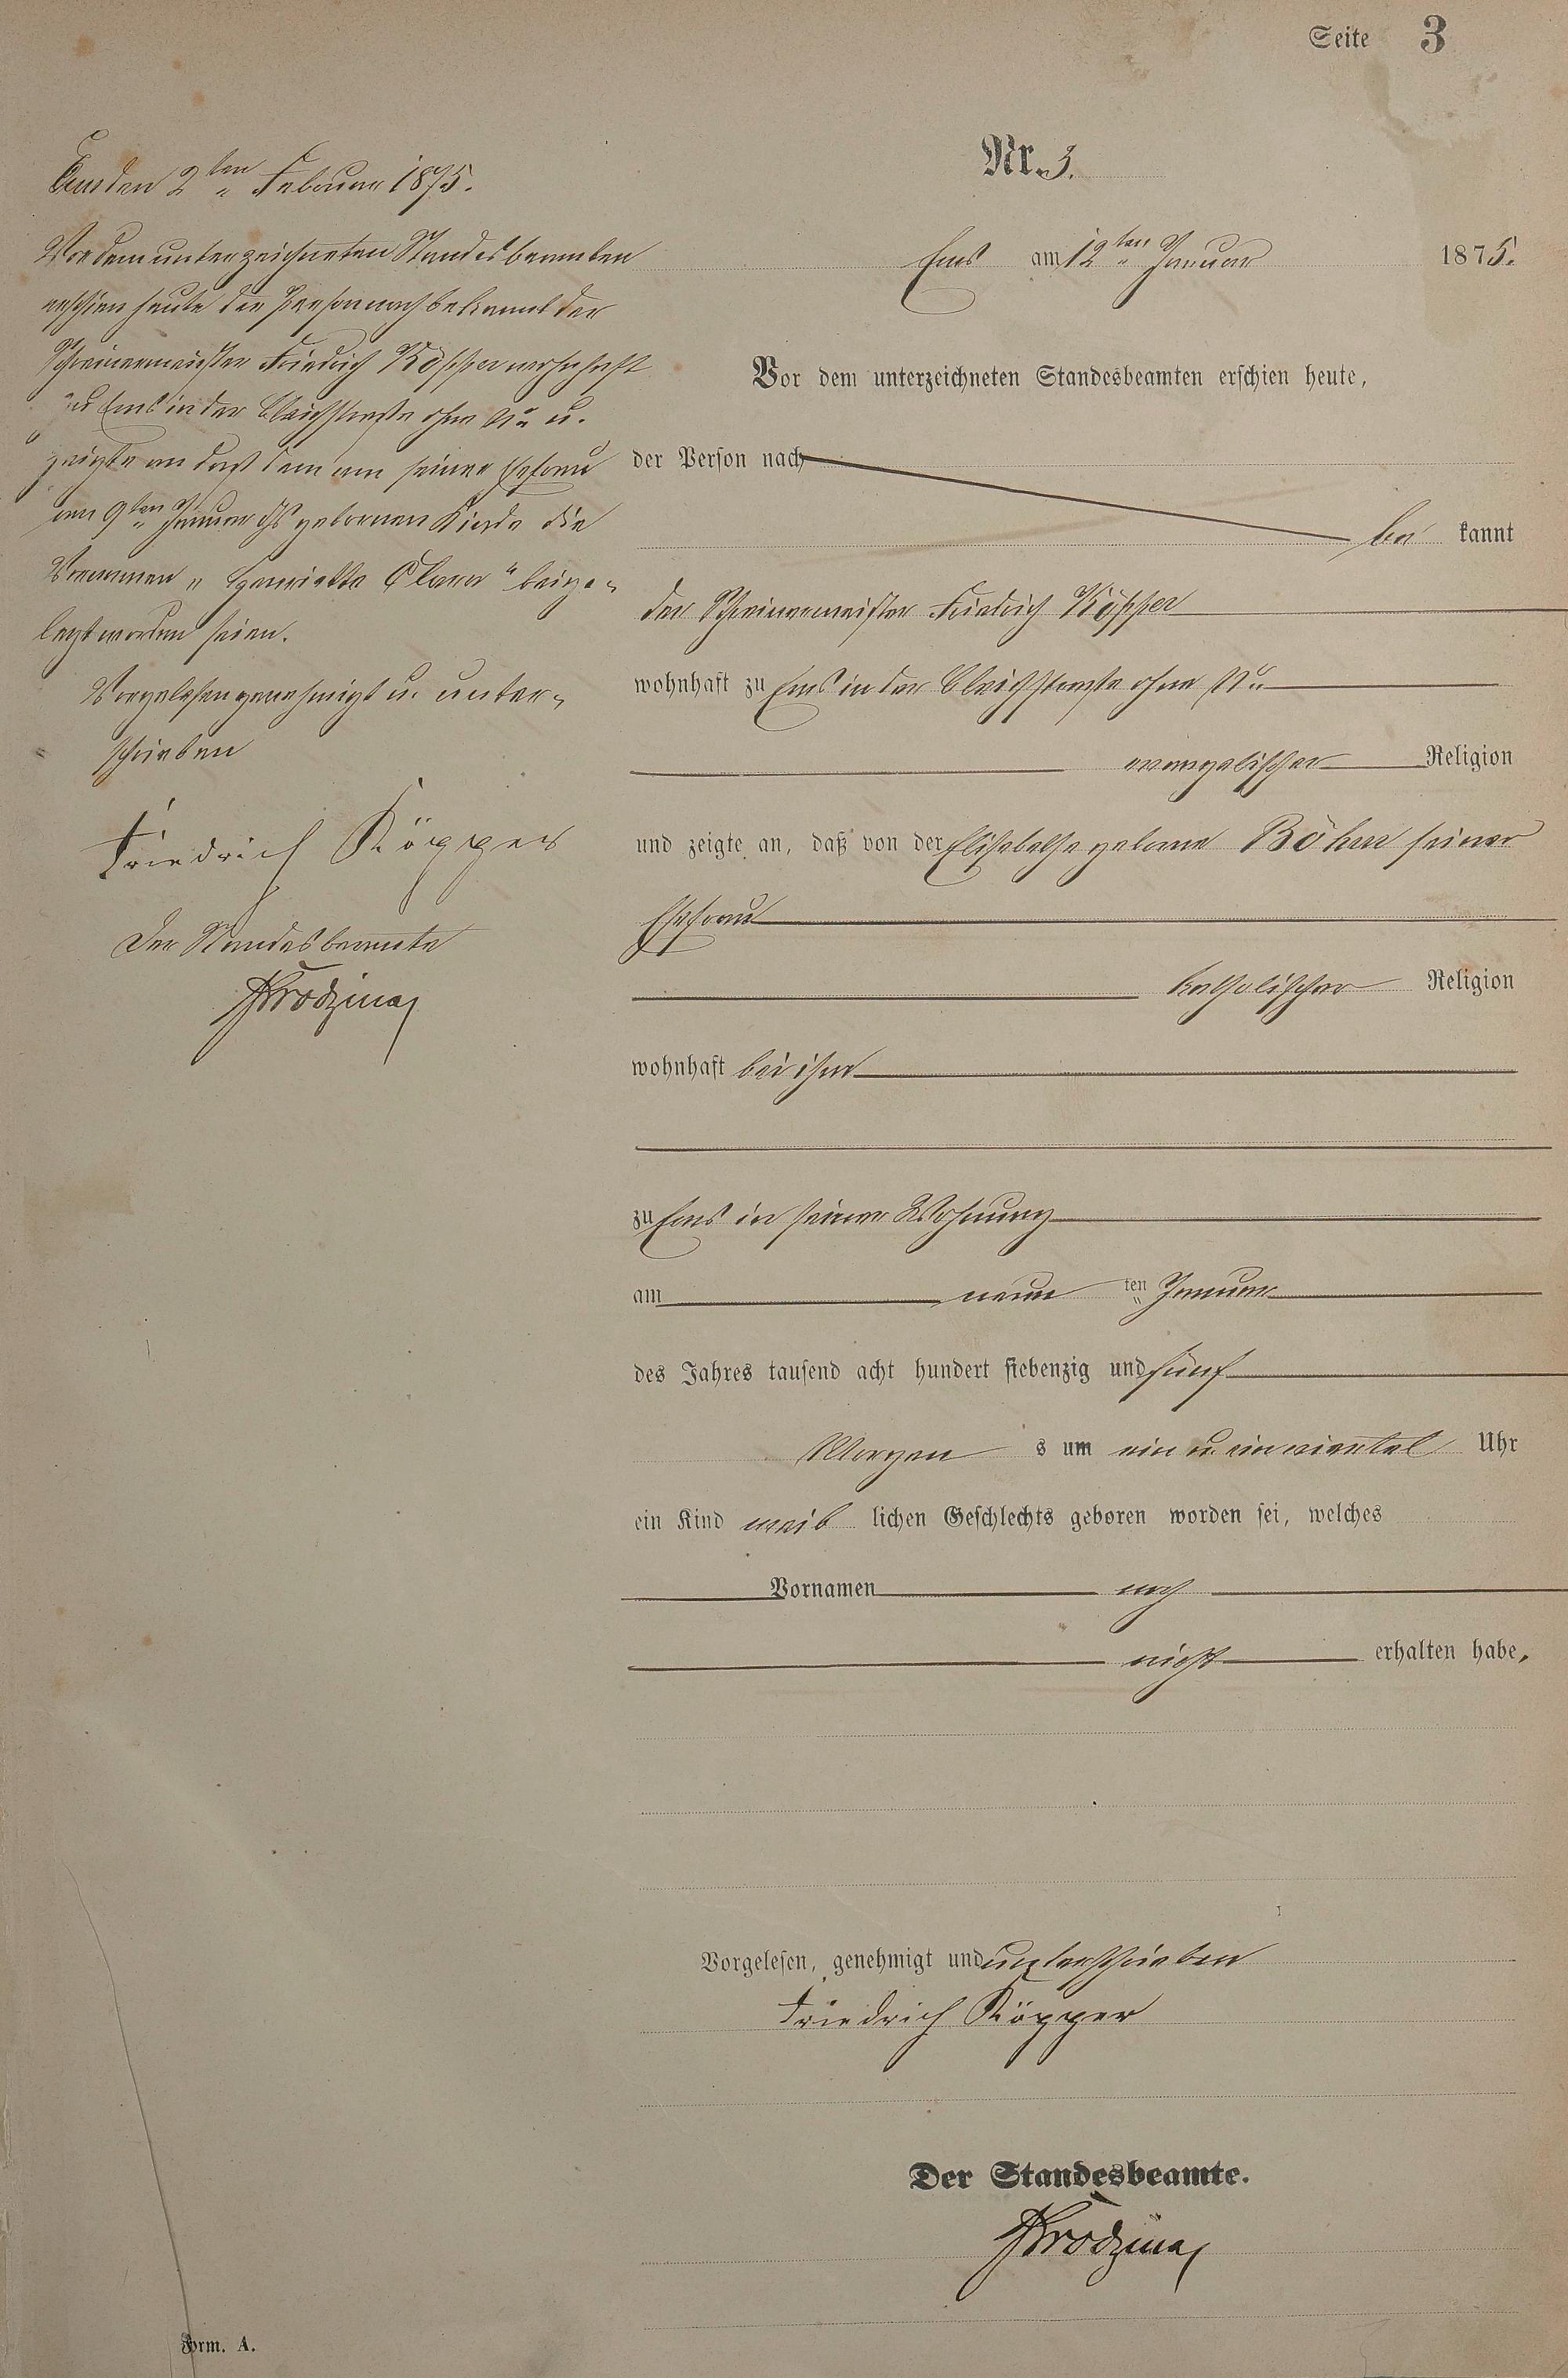 Seite 3
Nr. 3.
Ems am 12ten Januar 1875.
Vor dem unterzeichneten Standesbeamten erschien heute,
der Person nach
be kannt
der Schreinermeister Friedrich Köpper
wohnhaft zu Ems in der Bleichstraße ohne No
evangelischer Religion
und zeigte an, daß von der Elisabethe geborne Böhm seiner
Ehefrau
katholischer Religion
wohnhaft bei ihm
zu Ems in seiner Wohnung
am neun ten Januar
des Jahres tausend acht hundert siebenzig und fünf
Morgen s um ein u. ein viertel Uhr
ein Kind weib lichen Geschlechts geboren worden sei, welches
Vornamen noch
nicht erhalten habe,
Vorgelesen, genehmigt und unterschrieben
Friedrich Köpper
Der Standesbeamte.
Ems den 2ten Februar 1875.
Vor dem unterzeichneten Standesbeamten
erschien heute der Person nach bekannt der
Schreinermeister Friedrich Köpper wohnhaft
zu Ems in der Bleichstraße ohne No u.
zeigte an daß dem von seiner Ehefrau
am 9ten Januar ds gebornen Kinde die
Vornamen „Henriette Clara“ beige-
legt worden seien.
Vorgelesen genehmigt u. unter-
schrieben
Friedrich Köpper
Der Standesbeamte
Form. A.